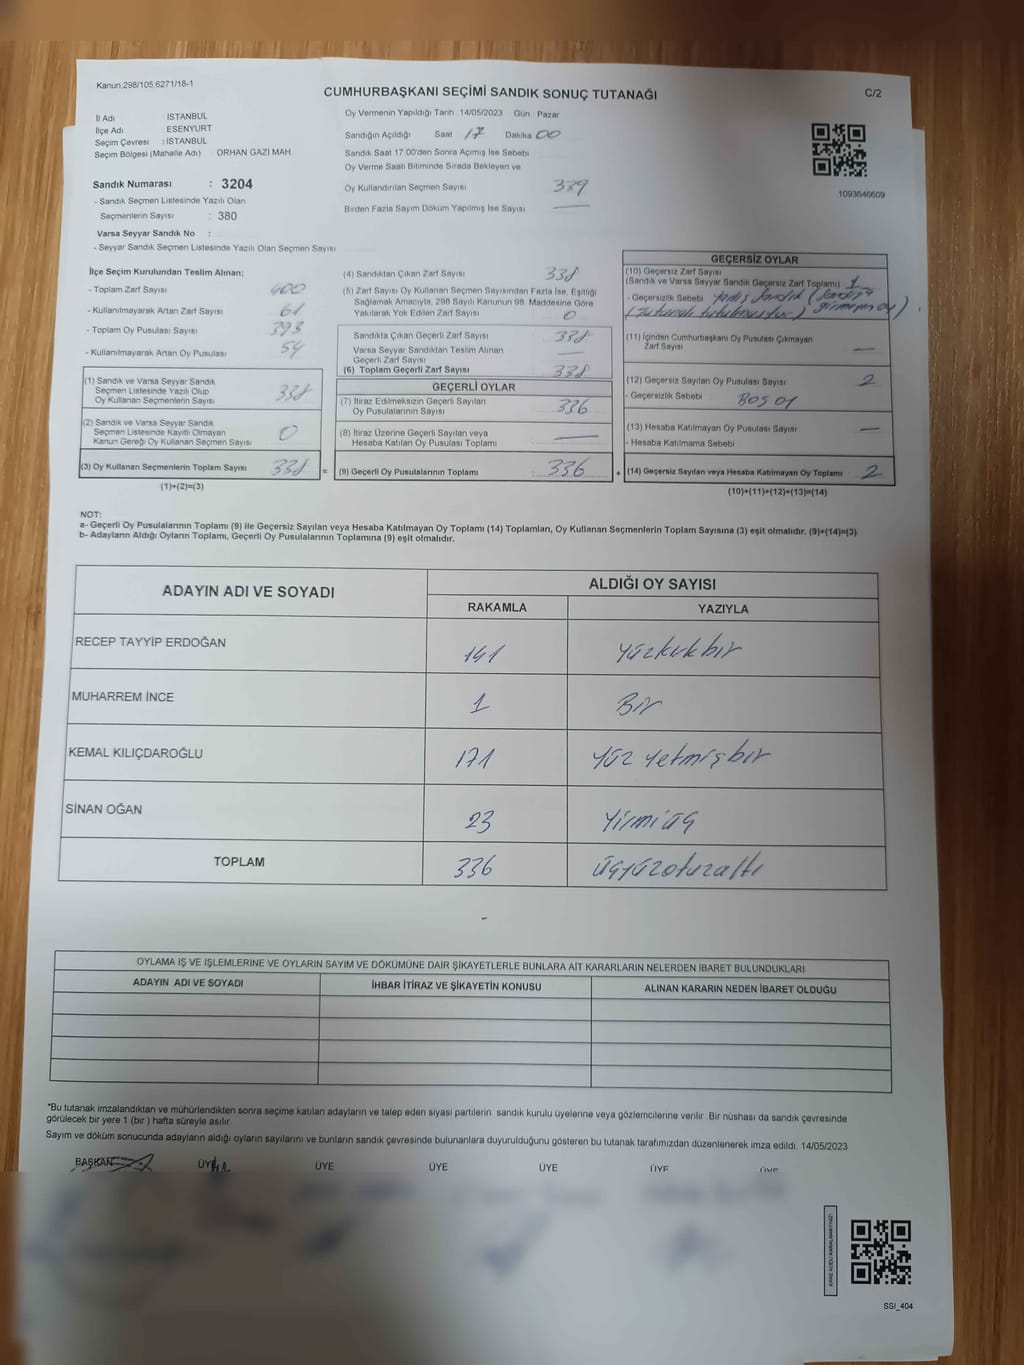 Kanun.298/105.6271/18-1
CUMHURBAŞKANI SEÇİMİ SANDIK SONUÇ TUTANAĞI
C/2
İl Adı İSTANBUL
İlçe Adı ESENYURT
Seçim Çevresi : İSTANBUL
Seçim Bölgesi (Mahalle Adı) : ORHAN GAZİ MAH.
Oy Vermenin Yapıldığı Tarih 14/05/2023 Gün : Pazar
Sandığın Açıldığı Saat 17 Dakika 00
Sandık Saat 17.00'den Sonra Açmış İse Sebebi
Oy Verme Saati Bitiminde Sırada Bekleyen ve
Oy Kullandırılan Seçmen Sayısı 339
Birden Fazla Sayım Döküm Yapılmış İse Sayısı —
1093646609
Sandık Numarası : 3204
- Sandık Seçmen Listesinde Yazılı Olan
Seçmenlerin Sayısı : 380
Varsa Seyyar Sandık No :
- Seyyar Sandık Seçmen Listesinde Yazılı Olan Seçmen Sayısı
İlçe Seçim Kurulundan Teslim Alınan;
- Toplam Zarf Sayısı 400
- Kullanılmayarak Artan Zarf Sayısı 61
- Toplam Oy Pusulası Sayısı 393
- Kullanılmayarak Artan Oy Pusulası 54
(1) Sandık ve Varsa Seyyar Sandık
Seçmen Listesinde Yazılı Olup
Oy Kullanan Seçmenlerin Sayısı 338
(2) Sandık ve Varsa Seyyar Sandık
Seçmen Listesinde Kayıtlı Olmayan
Kanun Gereği Oy Kullanan Seçmen Sayısı 0
(3) Oy Kullanan Seçmenlerin Toplam Sayısı 338 =
(1)+(2)=(3)
(4) Sandıktan Çıkan Zarf Sayısı 338
(5) Zarf Sayısı Oy Kullanan Seçmen Sayısından Fazla İse, Eşitliği
Sağlamak Amacıyla, 298 Sayılı Kanunun 98. Maddesine Göre
Yakılarak Yok Edilen Zarf Sayısı 0
Sandıkta Çıkan Geçerli Zarf Sayısı 338
Varsa Seyyar Sandıktan Teslim Alınan
Geçerli Zarf Sayısı —
(6) Toplam Geçerli Zarf Sayısı 338
GEÇERLİ OYLAR
(7) İtiraz Edilmeksizin Geçerli Sayılan
Oy Pusulalarının Sayısı 336
(8) İtiraz Üzerine Geçerli Sayılan veya
Hesaba Katılan Oy Pusulası Toplamı —
(9) Geçerli Oy Pusulalarının Toplamı : 336 +
GEÇERSİZ OYLAR
(10) Geçersiz Zarf Sayısı
(Sandık ve Varsa Seyyar Sandık Geçersiz Zarf Toplamı) 1
- Geçersizlik Sebebi Yanlış Sandık (Sandığa
(Tutanak tutulmuştur) girmeyen oy)
(11) İçinden Cumhurbaşkanı Oy Pusulası Çıkmayan
Zarf Sayısı —
(12) Geçersiz Sayılan Oy Pusulası Sayısı 2
- Geçersizlik Sebebi BOŞ OY
(13) Hesaba Katılmayan Oy Pusulası Sayısı —
- Hesaba Katılmama Sebebi
(14) Geçersiz Sayılan veya Hesaba Katılmayan Oy Toplamı 2
(10)+(11)+(12)+(13)=(14)
NOT:
a- Geçerli Oy Pusulalarının Toplamı (9) ile Geçersiz Sayılan veya Hesaba Katılmayan Oy Toplamı (14) Toplamları, Oy Kullanan Seçmenlerin Toplam Sayısına (3) eşit olmalıdır. (9)+(14)=(3)
b- Adayların Aldığı Oyların Toplamı, Geçerli Oy Pusulalarının Toplamına (9) eşit olmalıdır.
ADAYIN ADI VE SOYADI
ALDIĞI OY SAYISI
RAKAMLA YAZIYLA
RECEP TAYYİP ERDOĞAN 141 Yüzkırkbir
MUHARREM İNCE 1 Bir
KEMAL KILIÇDAROĞLU 171 Yüz Yetmişbir
SİNAN OĞAN 23 Yirmiüç
TOPLAM 336 Üçyüzotuzaltı
OYLAMA İŞ VE İŞLEMLERİNE VE OYLARIN SAYIM VE DÖKÜMÜNE DAİR ŞİKAYETLERLE BUNLARA AİT KARARLARIN NELERDEN İBARET BULUNDUKLARI
ADAYIN ADI VE SOYADI İHBAR İTİRAZ VE ŞİKAYETİN KONUSU ALINAN KARARIN NEDEN İBARET OLDUĞU
*Bu tutanak imzalandıktan ve mühürlendikten sonra seçime katılan adayların ve talep eden siyasi partilerin sandık kurulu üyelerine veya gözlemcilerine verilir .Bir nüshası da sandık çevresinde
görülecek bir yere 1 (bir ) hafta süreyle asılır.
Sayım ve döküm sonucunda adayların aldığı oyların sayılarını ve bunların sandık çevresinde bulunanlara duyurulduğunu gösteren bu tutanak tarafımızdan düzenlenerek imza edildi. 14/05/2023
BAŞKAN ÜYE ÜYE ÜYE ÜYE ÜYE ÜYE
SSI_404